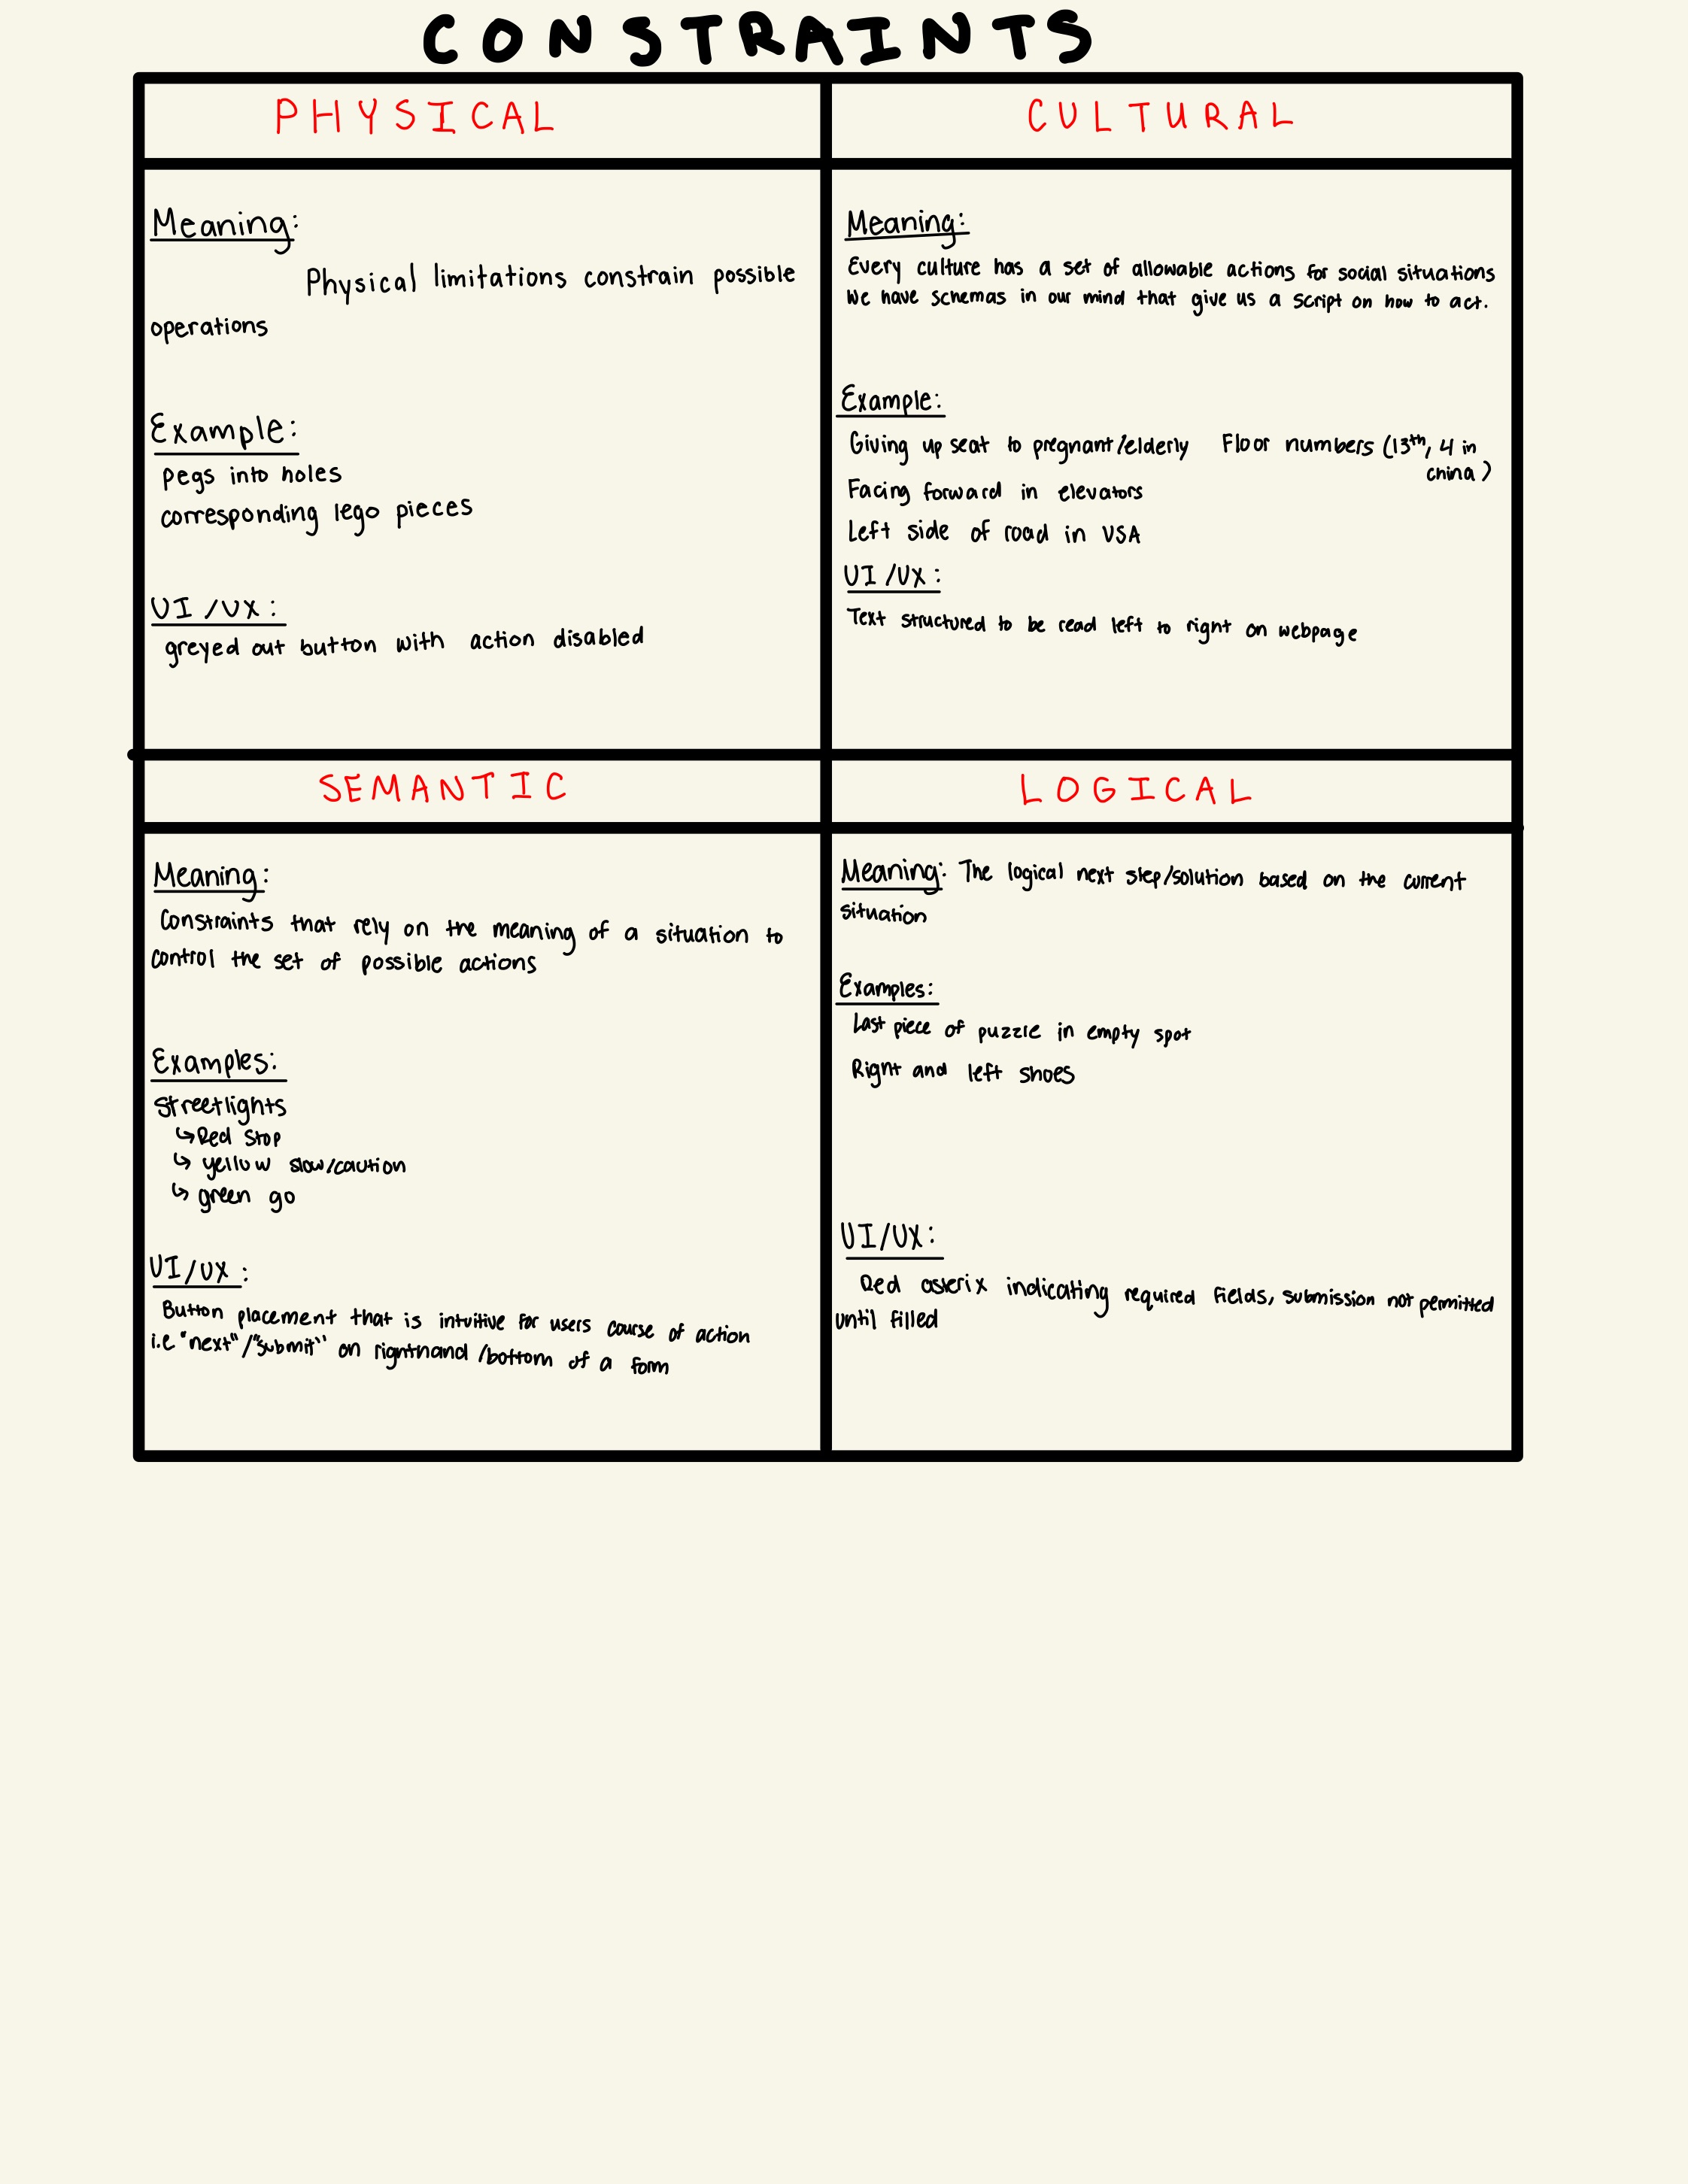 CONSTRAINTS
PHYSICAL
Meaning:
Physical limitations constrain possible
operations
Example:
pegs into holes
corresponding lego pieces
UI/UX:
greyed out button with action disabled
CULTURAL
Meaning:
Every culture has a set of allowable actions for social situations
We have schemas in our mind that give us a script on how to act.
Example:
Giving up seat to pregnant/elderly Floor numbers (13th, 4 in
china)
Facing forward in elevators
Left side of road in USA
UI/UX:
Text structured to be read left to right on webpage
SEMANTIC
Meaning:
Constraints that rely on the meaning of a situation to
control the set of possible actions
Examples:
Streetlights
↳ Red stop
↳ yellow slow/caution
↳ green go
UI/UX:
Button placement that is intuitive for users course of action
i.e "next"/"submit" on righthand/bottom of a form
LOGICAL
Meaning: The logical next step/solution based on the current
situation
Examples:
Last piece of puzzle in empty spot
Right and left shoes
UI/UX:
Red asterix indicating required fields, submission not permitted
until filled